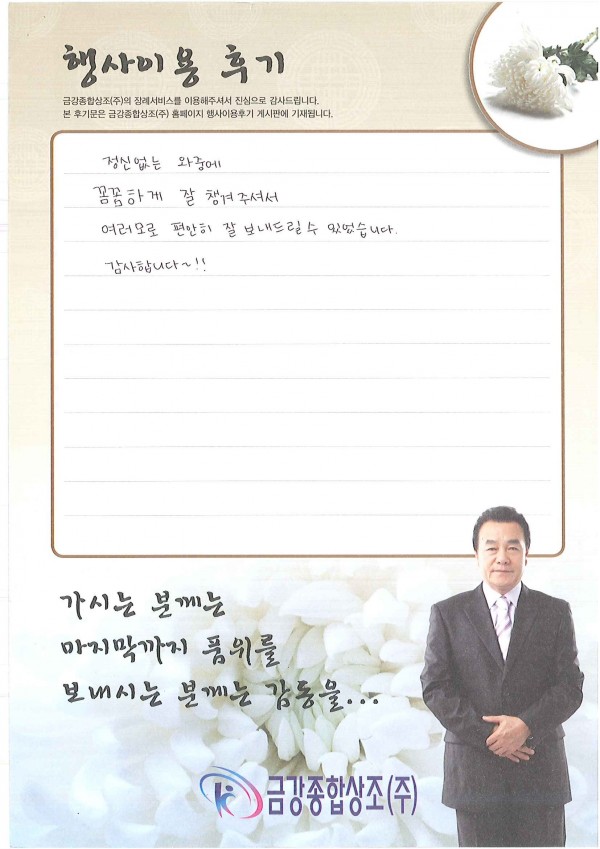 행사이용 후기
금강종합상조(주)의 장례서비스를 이용해주셔서 진심으로 감사드립니다.
본 후기문은 금강종합상조(주) 홈페이지 행사이용후기 게시판에 기재됩니다.
정신없는 와중에
꼼꼼하게 잘 챙겨주셔서
여러모로 편안히 잘 보내드릴 수 있었습니다.
감사합니다~!!
가시는 분께는
마지막까지 품위를
보내시는 분께는 감동을...
금강종합상조(주)